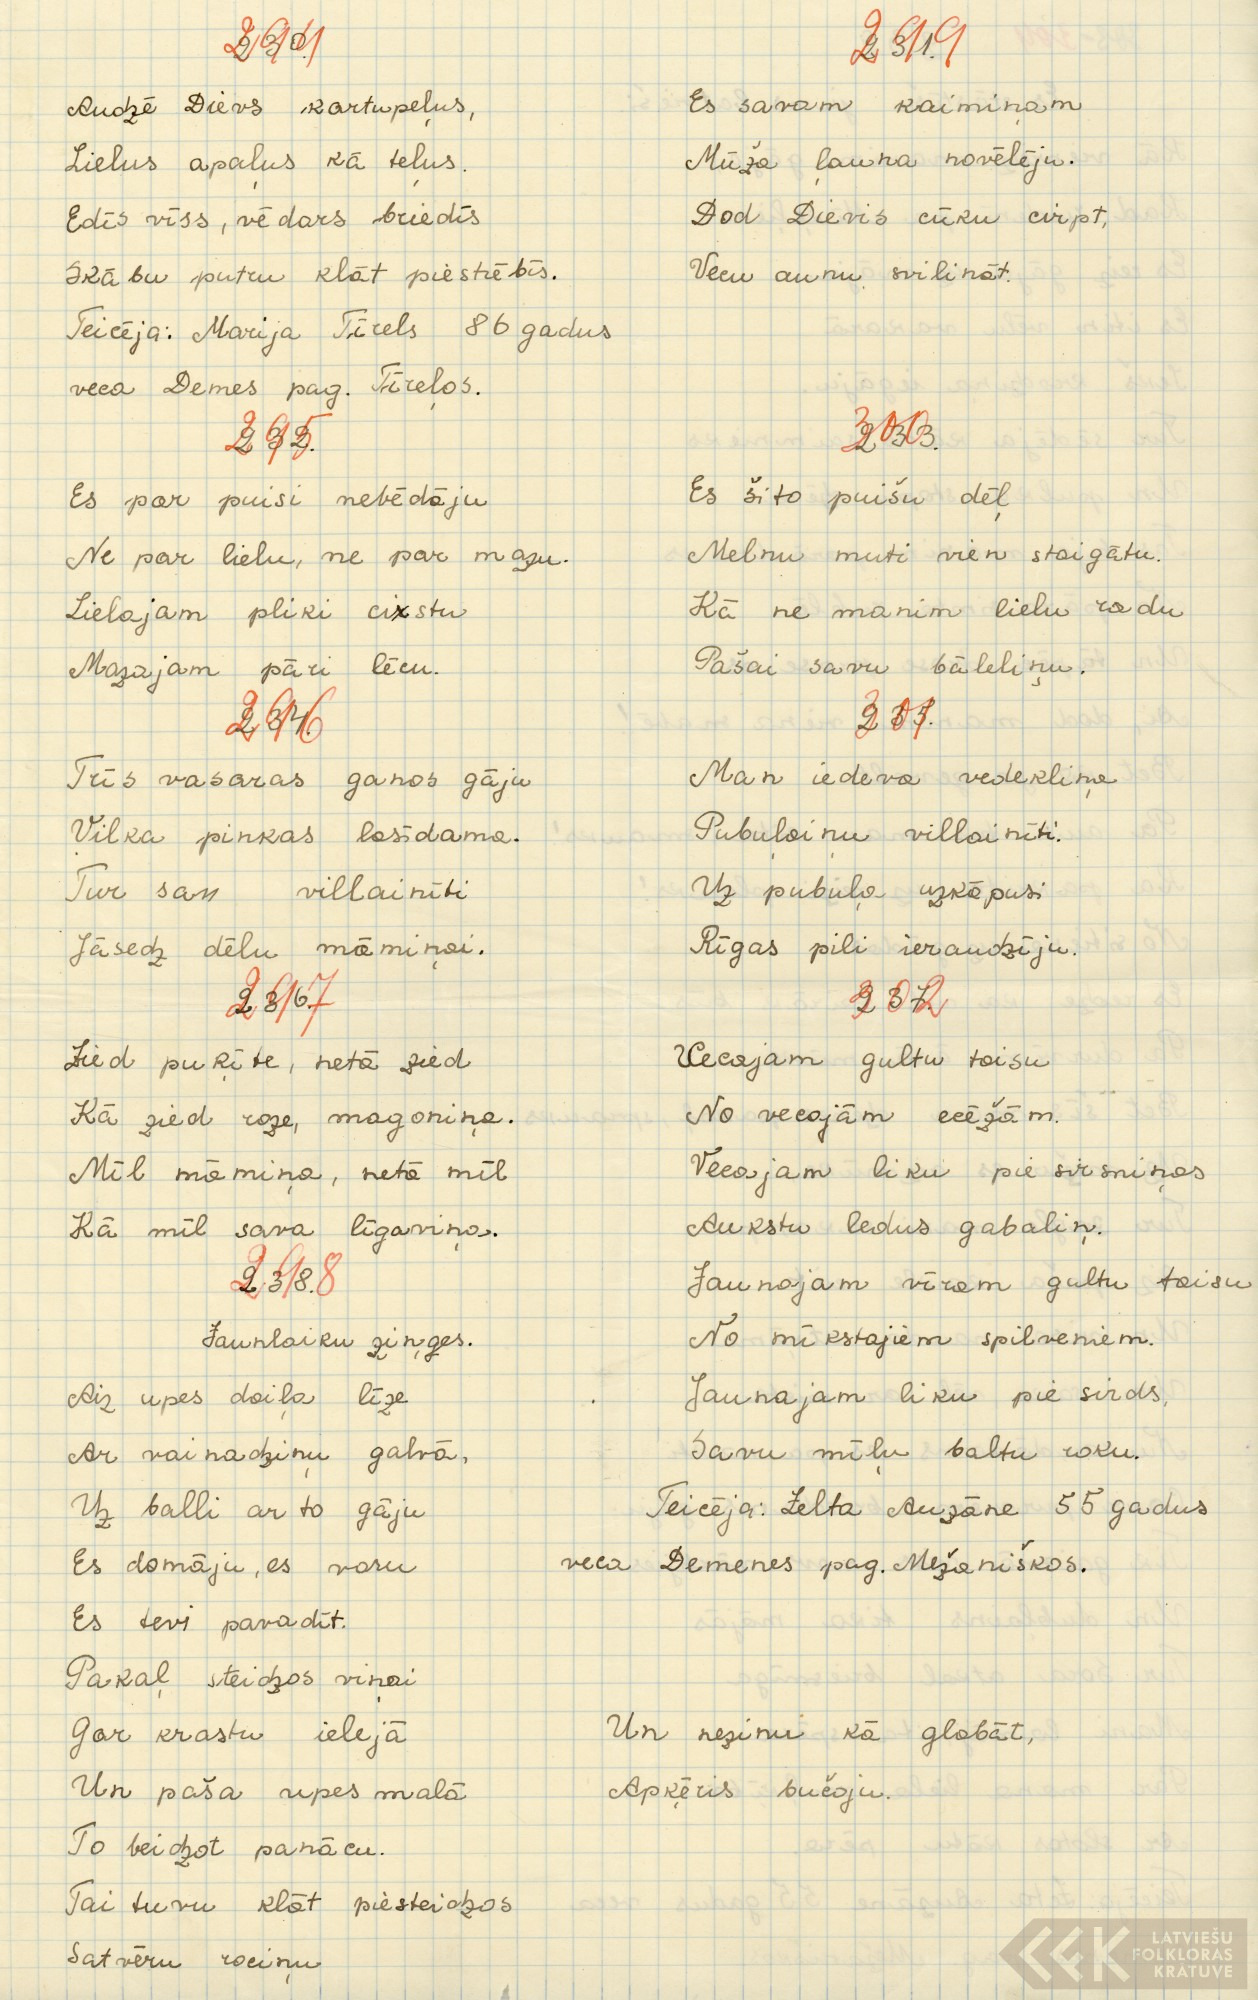 Audzē Dievs kartupeļus,
Lielus apaļus kā teļus.
Edīs vīss, vēdars briedīs
Skābu putru klāt piestrēbīs.
Teicēja: Marija Tīrels 86 gadus
veca Demes pag. Tīreļos.
295
232.
Es par puisi nebēdāju
Ne par lielu, ne par mazu.
Lielajam pliki cirstu
Mazajam pāri lēcu.
296
234.
Trīs vasaras ganos gāju
Vilka pinkas lasīdama.
Tur san villainīti
Jāsedz dēlu māmiņai.
297
236.
Zied puķīte, netā zied
Kā zied roze, magoniņa.
Mīl māmiņa, netā mīl
Kā mīl sava līgaviņa.
298
238.
Jaunlaiku ziņģes.
Aiz upes daiļa līze
Ar vainadziņu galvā,
Uz balli ar to gāju
Es domāju, es varu
Es tevi pavadīt.
Pakaļ steidzos viņai
Gar krastu ielejā
Un paša upes malā
To beidzot panācu.
Tai tuvu klāt piesteidzos
Satvēru rociņu
299
231.
Es savam kaimiņam
Mūža ļauna novēlēju.
Dod Dievis cūku cirpt,
Vecu aunu svilināt.
300
233.
Es šito puišu dēļ
Melnu muti vien staigātu.
Kā ne manim lielu radu
Pašai savu bāleliņu.
301
235.
Man iedeva vedekliņa
Pubuļainu villainīti.
Uz pubuļa uzkāpusi
Rīgas pili ieraudzīju.
302
237
Vecajam gultu taisu
No vecajām ecēžām.
Vecajam liku pie sirsniņas
Aukstu ledus gabaliņ.
Jaunajam vīram gultu taisu
No mīkstajiem spilveniem.
Jaunajam liku pie sirds,
Savu mīļu baltu roku.
Teicēja: Zelta Auzāne 55 gadus
veca Demenes pag. Mežaniškos.
Un nezinu kā glabāt,
Apķēris bučoju.
LATVIEŠU
FOLKLORAS
KRĀTUVE